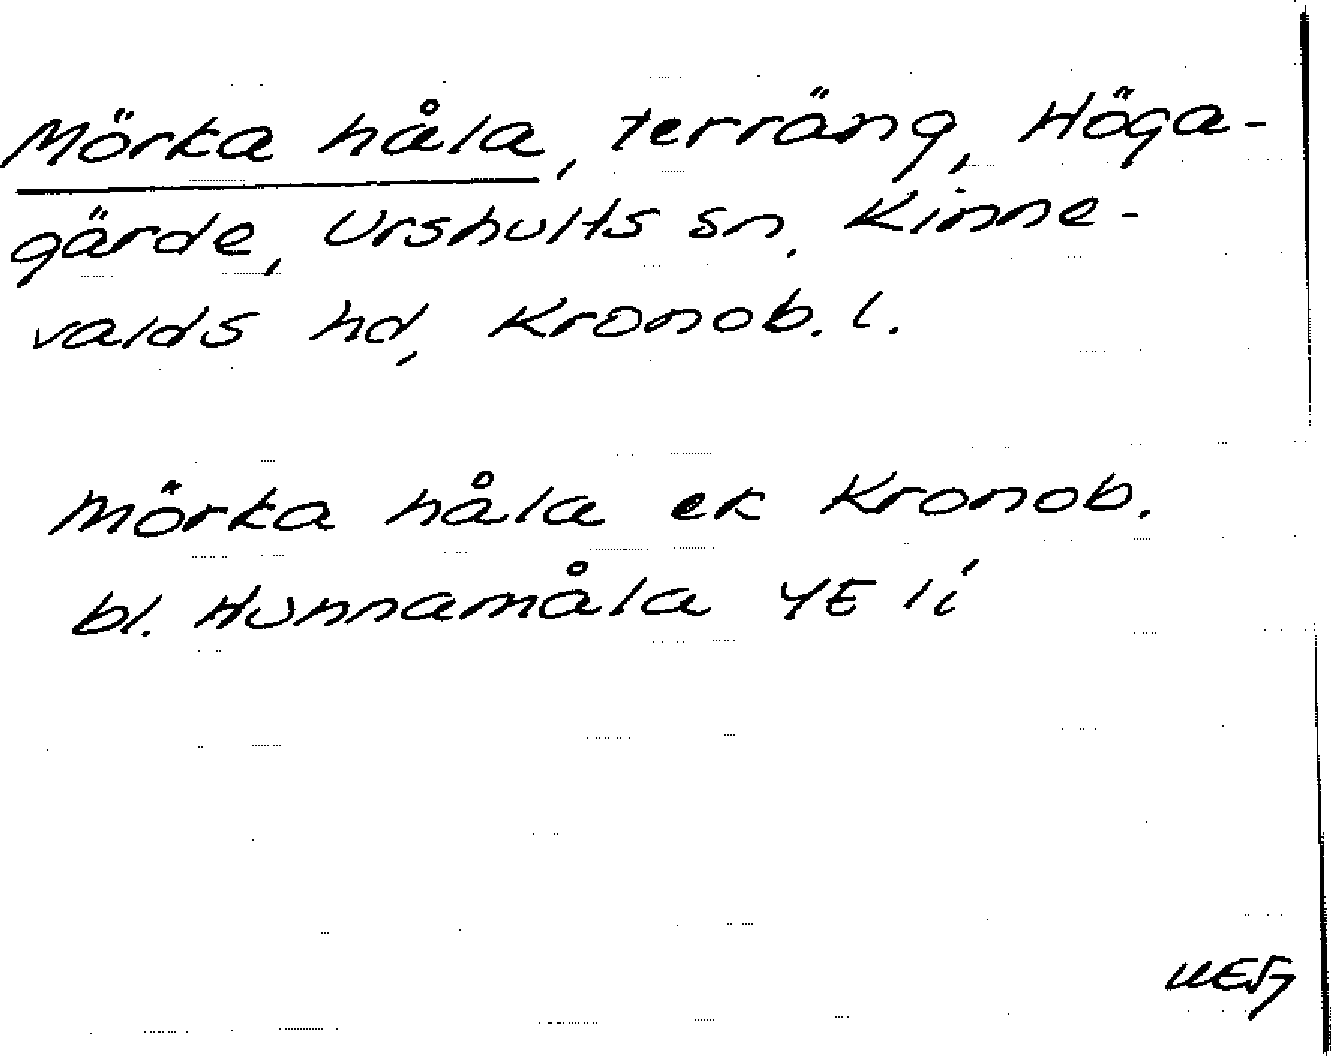 Mörka håla, terräng, Höga-
gärde, Urshults sn, Kinne-
valds hd, Kronob. l.
Mörka håla ek Kronob.
bl. Hunnamåla 4E 1i